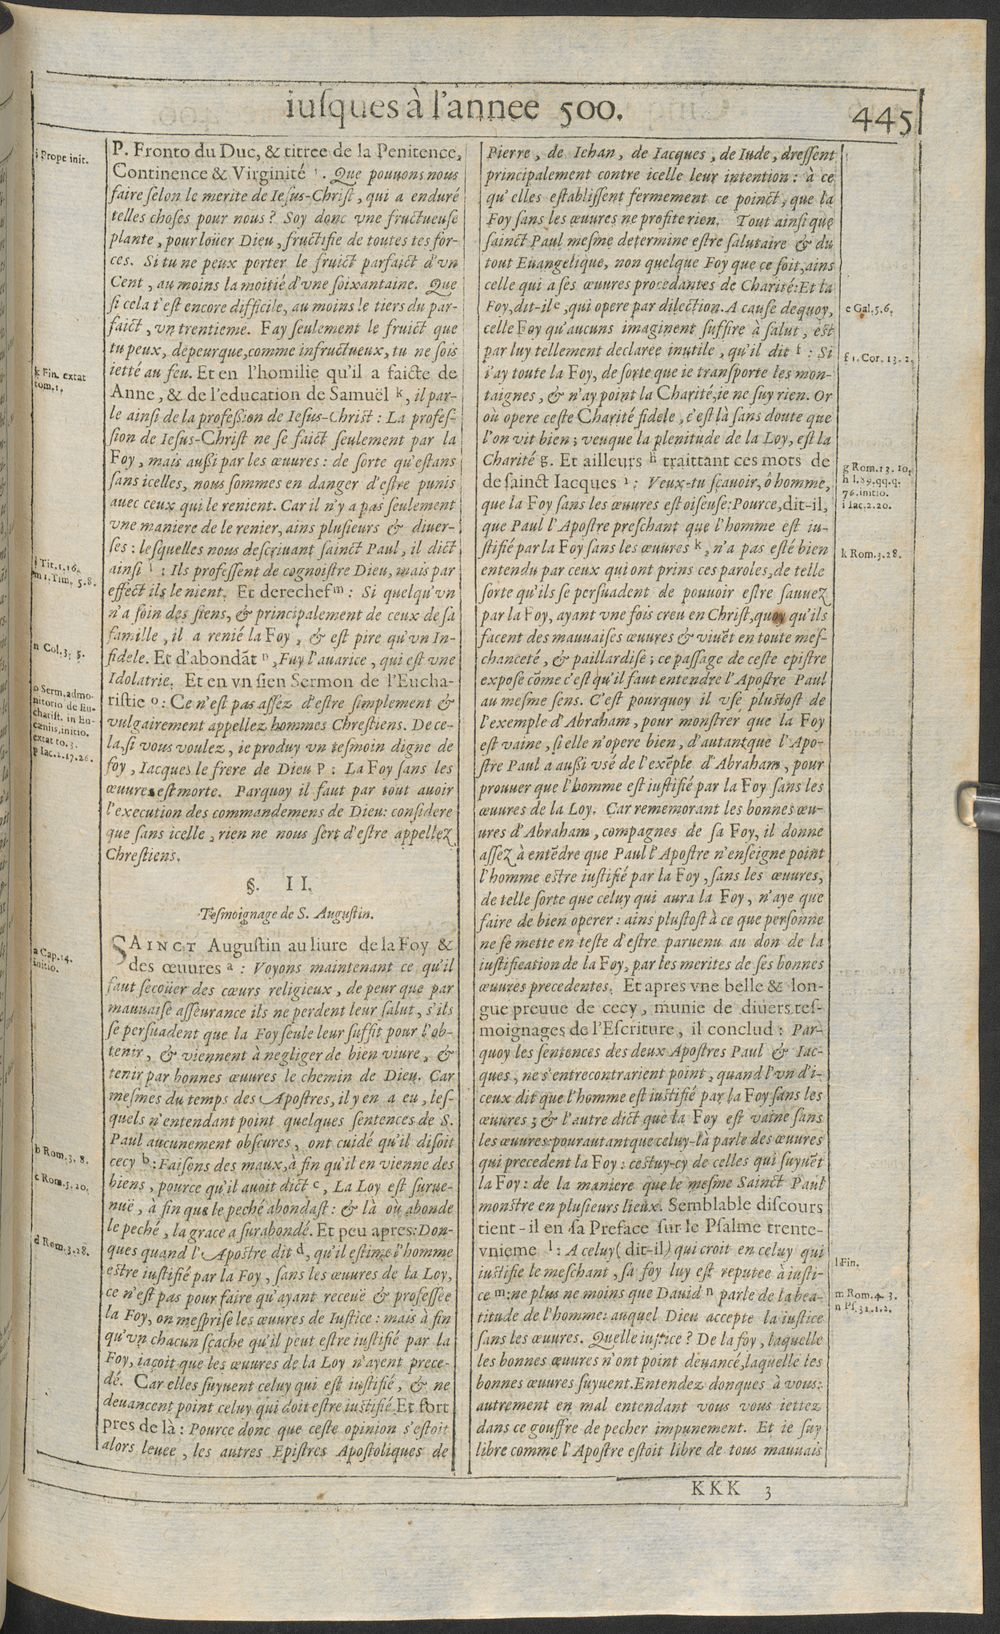 iusques à l'annee 500.
445
i Prope init.
P. Fronto du Duc, & tittree de la Penitence,
Continence & Virginité i. Que pouuons nous
faire selon le merite de Iesus-Christ, qui a enduré
telles choses pour nous? Soy donc vne fructueuse
plante, pour loüer Dieu, fructifie de toutes tes for-
ces. Si tu ne peux porter le fruict parfaict d'vn
Cent, au moins la moitié d'vne soixantaine. Que
si cela t'est encore difficile, au moins le tiers du par-
faict, vn trentieme. Fay seulement le fruict que
tu peux, de peur que, comme infructueux, tu ne sois
ietté au feu. Et en l'homilie qu'il a faicte de
Anne, & de l'education de Samuël k, il par-
le ainsi de la profession de Iesus-Christ: La profes-
sion de Iesus-Christ ne se faict seulement par la
Foy, mais aussi par les œuures: de sorte qu'estans
sans icelles, nous sommes en danger d'estre punis
auec ceux qui le renient. Car il n'y a pas seulement
vne maniere de le renier, ains plusieurs & diuer-
ses: lesquelles nous descriuant sainct Paul, il dict
ainsi l: Ils professent de cognoistre Dieu, mais par
effect ils le nient. Et derechef m: Si quelqu'vn
n'a soin des siens, & principalement de ceux de sa
famille, il a renié la Foy, & est pire qu'vn In-
fidele. Et d'abondāt n, Fuy l'auarice, qui est vne
Idolatrie. Et en vn sien Sermon de l'Eucha-
ristie o: Ce n'est pas assez d'estre simplement &
vulgairement appellez hommes Chrestiens. De ce-
la, si vous voulez, ie produy vn tesmoin digne de
foy, Iacques le frere de Dieu p: La Foy sans les
œuures est morte. Parquoy il faut par tout auoir
l'execution des commandemens de Dieu: considere
que sans icelle, rien ne nous sert d'estre appellez
Chrestiens.
k Fin. extat
tom. 1.
l Tit. 1. 16.
m 1. Tim. 5. 8.
n Col. 3. 5.
o Serm. admo-
nitorio de Eu-
charist. in Eu-
cæniis, initio.
extat to. 3.
p Iac. 2. 17. 26.
§. II.
Tesmoignage de S. Augustin.
SAINCT Augustin au liure de la Foy &
des œuures a: Voyons maintenant ce qu'il
faut secoüer des cœurs religieux, de peur que par
mauuaise asseurance ils ne perdent leur salut, s'ils
se persuadent que la Foy seule leur suffit pour l'ob-
tenir, & viennent à negliger de bien viure, &
tenir par bonnes œuures le chemin de Dieu. Car
mesmes du temps des Apostres, il y en a eu, les-
quels n'entendant point quelques sentences de S.
Paul aucunement obscures, ont cuidé qu'il disoit
cecy b: Faisons des maux, à fin qu'il en vienne des
biens, pource qu'il auoit dict c, La Loy est surue-
nuë, à fin que le peché abondast: & là où abonde
le peché, la grace a surabondé. Et peu apres: Don-
ques quand l'Apostre dit d, qu'il estime l'homme
estre iustifié par la Foy, sans les œuures de la Loy,
ce n'est pas pour faire qu'ayant receuë & professée
la Foy, on mesprise les œuures de Iustice: mais à fin
qu'vn chacun sçache qu'il peut estre iustifié par la
Foy, iaçoit que les œuures de la Loy n'ayent prece-
dé. Car elles suyuent celuy qui est iustifié, & ne
deuancent point celuy qui doit estre iustifié. Et fort
pres de là: Pource donc que ceste opinion s'estoit
alors leuee, les autres Epistres Apostoliques de
a Cap. 14.
initio.
b Rom. 3. 8.
c Rom. 5. 20.
d Rom. 3. 28.
Pierre, de Iehan, de Iacques, de Iude, dressent
principalement contre icelle leur intention: à ce
qu'elles establissent fermement ce poinct, que la
Foy sans les œuures ne profite rien. Tout ainsi que
sainct Paul mesme determine estre salutaire & du
tout Euangelique, non quelque Foy que ce soit, ains
celle qui a ses œuures procedantes de Charité: Et la
Foy, dit-il e, qui opere par dilection. A cause dequoy,
celle Foy qu'aucuns imaginent suffire à salut, est
par luy tellement declaree inutile, qu'il dit f: Si
i'ay toute la Foy, de sorte que ie transporte les mon-
taignes, & n'ay point la Charité, ie ne suy rien. Or
où opere ceste Charité fidele, c'est là sans doute que
l'on vit bien; veu que la plenitude de la Loy, est la
Charité g. Et ailleurs h traittant ces mots de
de sainct Iacques i: Veux-tu sçauoir, ô homme,
que la Foy sans les œuures est oiseuse: Pource, dit-il,
que Paul l'Apostre preschant que l'homme est iu-
stifié par la Foy sans les œuures k, n'a pas esté bien
entendu par ceux qui ont prins ces paroles, de telle
sorte qu'ils se persuadent de pouuoir estre sauuez
par la Foy, ayant vne fois creu en Christ, quoy qu'ils
facent des mauuaises œuures & viuēt en toute mes-
chanceté, & paillardise; ce passage de ceste epistre
expose cōme c'est qu'il faut entendre l'Apostre Paul
au mesme sens. C'est pourquoy il vse plustost de
l'exemple d'Abraham, pour monstrer que la Foy
est vaine, si elle n'opere bien, d'autant que l'Apo-
stre Paul a aussi vsé de l'exēple d'Abraham, pour
prouuer que l'homme est iustifié par la Foy sans les
œuures de la Loy. Car rememorant les bonnes œu-
ures d'Abraham, compagnes de sa Foy, il donne
assez à entēdre que Paul l'Apostre n'enseigne point
l'homme estre iustifié par la Foy, sans les œuures,
de telle sorte que celuy qui aura la Foy, n'aye que
faire de bien operer: ains plustost à ce que personne
ne se mette en teste d'estre paruenu au don de la
iustification de la Foy, par les merites de ses bonnes
œuures precedentes. Et apres vne belle & lon-
gue preuue de cecy, munie de diuers tes-
moignages de l'Escriture, il conclud: Par-
quoy les sentences des deux Apostres Paul & Iac-
ques, ne s'entrecontrarient point, quand l'vn d'i-
ceux dit que l'homme est iustifié par la Foy sans les
œuures; & l'autre dict que la Foy est vaine sans
les œuures: pour autant que celuy-là parle des œuures
qui precedent la Foy: cestuy-cy de celles qui suyuēt
la Foy: de la maniere que le mesme Sainct Paul
monstre en plusieurs lieux. Semblable discours
tient-il en sa Preface sur le Psalme trente-
vnieme l: A celuy (dit-il) qui croit en celuy qui
iustifie le meschant, sa foy luy est reputee à iusti-
ce m: ne plus ne moins que Dauid n parle de la bea-
titude de l'homme: auquel Dieu accepte la iustice
sans les œuures. Quelle iustice? De la foy, laquelle
les bonnes œuures n'ont point deuancé, laquelle les
bonnes œuures suyuent. Entendez donques à vous:
autrement en mal entendant vous vous iettez
dans ce gouffre de pecher impunement. Et ie suy
libre comme l'Apostre estoit libre de tous mauuais
e Gal. 5. 6.
f 1. Cor. 13. 2.
g Rom. 13. 10.
h l. 89. qq. q.
76. initio.
i Iac. 2. 20.
k Rom. 3. 28.
l Fin.
m Rom. 4. 3.
n Ps. 31. 1. 2.
KKK 3